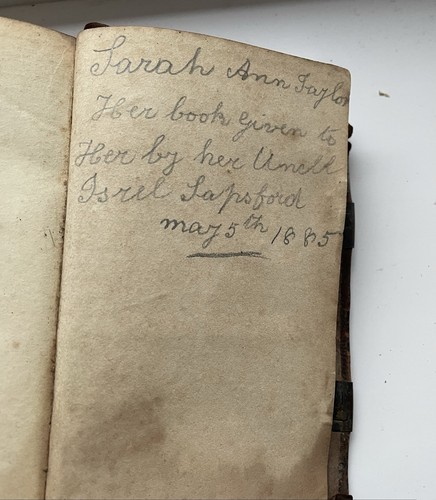 Sarah Ann Taylor
Her book given to
Her by her Uncll
Isrel Lapsford
may 5th 1885